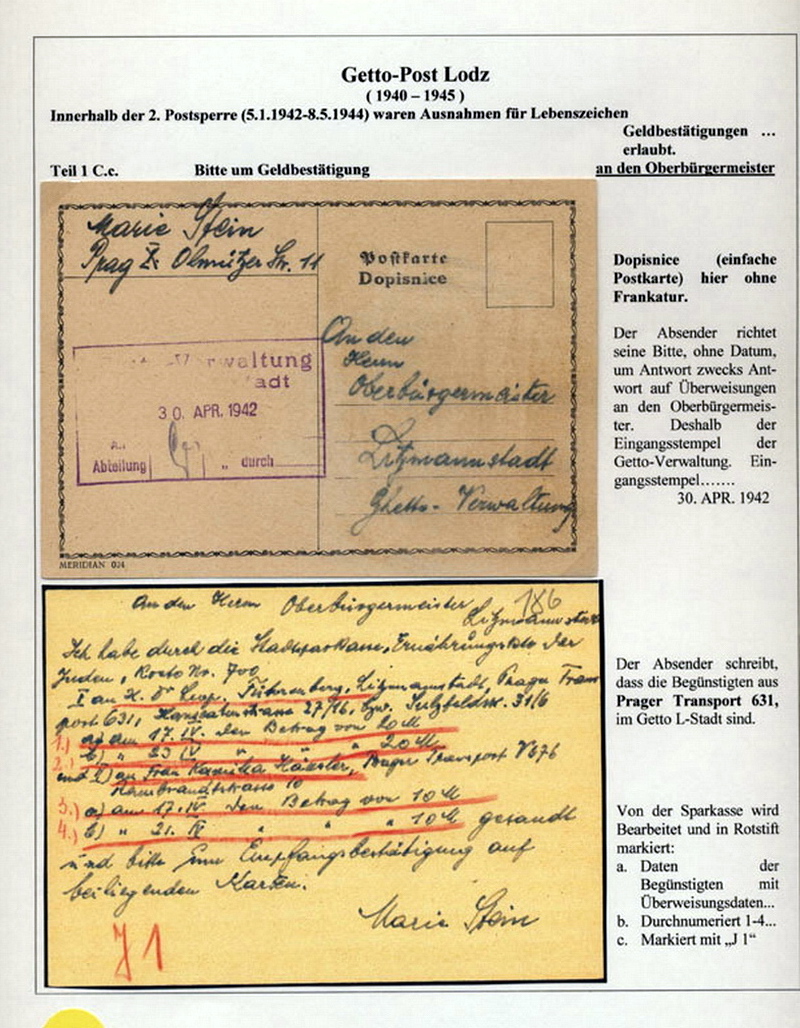 Getto-Post Lodz
( 1940 – 1945 )
Innerhalb der 2. Postsperre (5.1.1942-8.5.1944) waren Ausnahmen für Lebenszeichen
Geldbestätigungen ...
erlaubt.
Teil 1 C.c. Bitte um Geldbestätigung an den Oberbürgermeister
Marie Stein
Prag X. Olmützer Str. 11
Postkarte
Dopisnice
An den
Herrn
Oberbürgermeister
Litzmannstadt
Ghetto-Verwaltung
Verwaltung
adt
30. APR. 1942
An
Abteilung „ durch
MERIDIAN 024
Dopisnice (einfache
Postkarte) hier ohne
Frankatur.
Der Absender richtet
seine Bitte, ohne Datum,
um Antwort zwecks Ant-
wort auf Überweisungen
an den Oberbürgermeis-
ter. Deshalb der
Eingangsstempel der
Getto-Verwaltung. Ein-
gangsstempel.......
30. APR. 1942
186
An den Herrn Oberbürgermeister
Litzmannstadt
Ich habe durch die Stadtsparkasse, Ernährungskto der
Juden, Konto No. 700
I an H. Dr Leop. Litzmannstadt, Prager Trans
port 631, Hanseatenstrasse 27/16, bzw. 31/6
1.) a) am 17. IV. den Betrag von 20 M
2.) b) " 23 IV " " " 20 M
und II) an Frau Kamilla Prager Transport V 676
Rembrandtstrasse 10
3.) a) am 17. IV. den Betrag von 10 M
4.) b) " 21. IV " " " 10 M gesandt
und bitte um Empfangsbestätigung auf
beiliegenden Karten.
Marie Stein
J 1
Der Absender schreibt,
dass die Begünstigten aus
Prager Transport 631,
im Getto L-Stadt sind.
Von der Sparkasse wird
Bearbeitet und in Rotstift
markiert:
a. Daten der
Begünstigten mit
Überweisungsdaten...
b. Durchnumeriert 1-4...
c. Markiert mit „J 1“